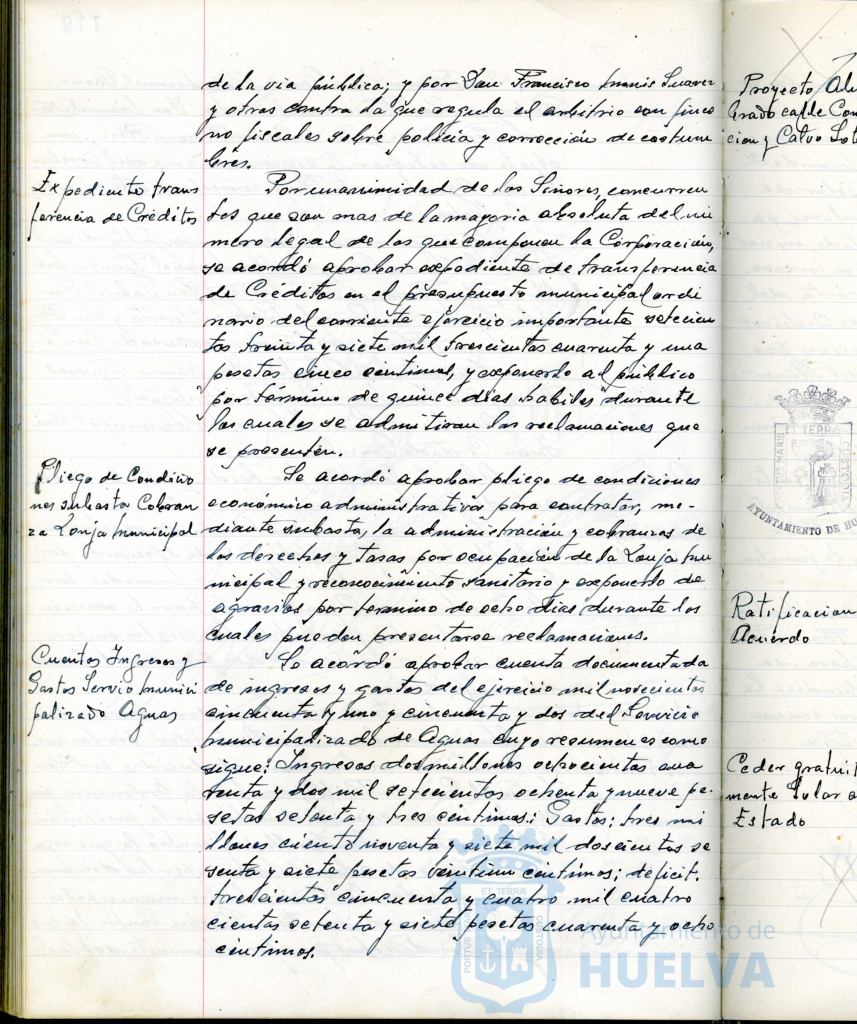 de la via pública; y por Don Francisco Munis Suarez
y otros contra la que regula el arbitrio con fines
no fiscales sobre policia y corrección de costum
bres.
Expediente trans
ferencia de Créditos
Por unanimidad de los Señores, concurren
tes que son mas de la mayoria absoluta del nú
mero legal de los que componen la Corporación,
se acordó aprobar expediente de transferencia
de Créditos en el presupuesto municipal ordi
nario del corriente ejercicio importante setecien
tos treinta y siete mil trescientos cuarenta y una
pesetas cinco centimos, y exponerlo al público
por término de quince dias habiles durante
los cuales se admitiran las reclamaciones que
se presenten.
Pliego de Condicio
nes subasta Cobran
za Lonja municipal
Se acordó aprobar pliego de condiciones
económico administrativas para contratar, me-
diante subasta, la administración y cobranzas de
los derechos y tasas por ocupación de la Lonja mu
nicipal y reconocimiento sanitario y exponerlo de
agravios por termino de ocho dias durante los
cuales pueden presentarse reclamaciones.
Cuentas Ingresos y
Gastos Servio munici
palizado Aguas
Se acordó aprobar cuenta documentada
de ingresos y gastos del ejercicio mil novecientos
cincuenta y uno y cincuenta y dos del Servicio
municipalizado de Aguas cuyo resumen es como
sigue: Ingresos dos millones ochocientas cua
renta y dos mil setecientos ochenta y nueve pe-
setas setenta y tres centimos.; Gastos: tres mi
llones ciento noventa y siete mil doscientos se
senta y siete pesetas veintiun centimos; deficit.
trescientos cincuenta y cuatro mil cuatro
cientos setenta y siete pesetas cuarenta y ocho
centimos.
Proyecto Alu
brado calle Con
cion y Calvo Sote
ET TERRÆ
CUSTODIA
AYUNTAMIENTO DE HU
Ratificacion
Acuerdo
Ceder gratuit
mente Solar a
Estado
PORTUS MARIS ET TERRÆ CUSTODIA
Ayuntamiento de
HUELVA